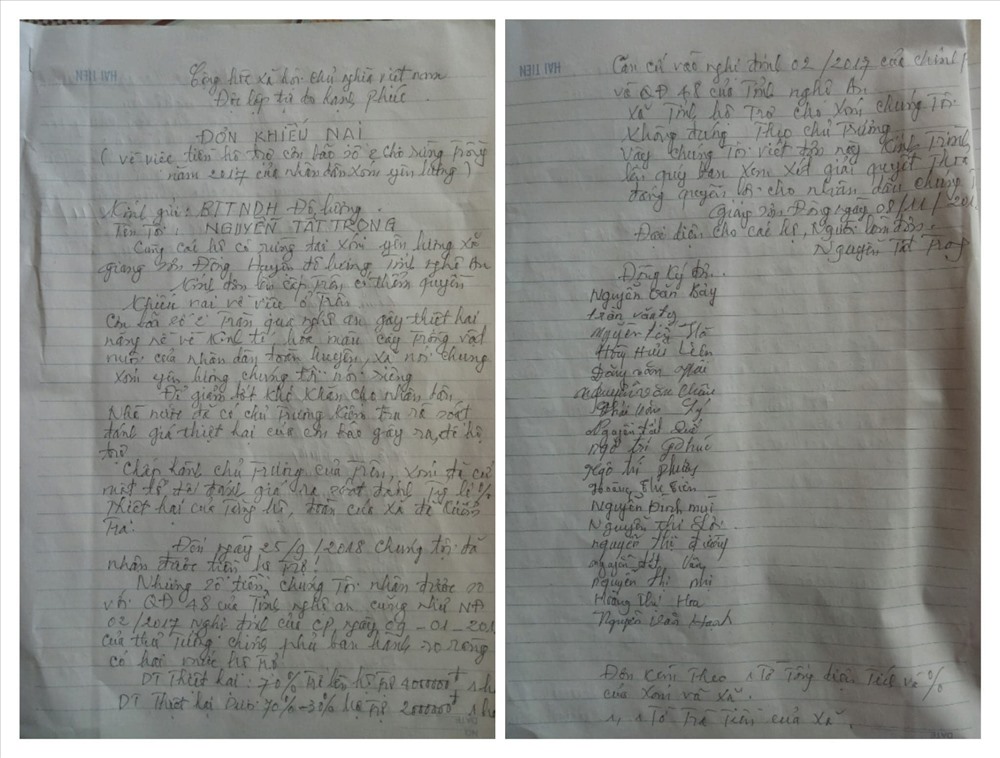 HẢI TIẾN
Cộng hòc xã hội chủ nghĩa việt nam
Độc lập tự do hạnh phúc
ĐƠN KHIẾU NẠI
( về việc tiền hỗ trợ cơn bão số 2 cho rừng Trồng
năm 2017 của nhân dân xóm yên lương )
Kính gửi: BTTNDH Đô lương.
Tên Tôi: NGUYỄN TẤT TRỌNG
Cùng các hộ có rừng tại xóm yên lương xã
giang sơn Đông Huyện đô lương Tỉnh nghệ An
Kính đơn lên cấp Trên có thẩm quyền
Khiếu nại về việc
Cơn bão số 2 Tràn qua nghệ an gây thiệt hại
nặng nề về Kinh tế, hoa màu cây Trồng vật
nuôi của nhân dân toàn huyện, xã nói chung
xóm yên lương chúng tôi nói riêng
Để giảm bớt khó khăn cho nhân dân
Nhà nước đã có chủ Trương kiểm tra rà soát
đánh giá thiệt hại của cơn bão gây ra, để hỗ
trợ
Chấp hành chủ Trương của Trên, xóm đã cử
một tổ để đánh giá rà soát đánh Tỷ lệ %
Thiệt hại của Từng hộ, đoàn của xã đi kiểm
Tra.
Đến ngày 25/9/2018 chúng tôi đã
nhận được tiền hỗ Trợ!
Nhưng số tiền chúng Tôi nhận được so
với QĐ 48 của Tỉnh nghệ an cũng như NĐ
02/2017 nghị định của CP, ngày 09-01-201
của thủ Tướng chính phủ ban hành rõ ràng
có hai mức hỗ Trợ
DT Thiệt hại: 70% Trở lên hỗ Trợ 4000000đ 1 h
DT Thiệt hại Dưới 70%-30% hỗ Trợ 2000000đ 1 h
HẢI TIẾN
Căn cứ vào nghị định 02/2017 của chính p
và QĐ 48 của Tỉnh nghệ An.
Xã Tính hỗ Trợ cho xóm chúng Tôi
Không đúng Theo chủ Trương
Vậy chúng Tôi viết đơn này Kính Trình
lên quý ban xem xét giải quyết Thỏa
đáng quyền lợi cho nhân dân chúng T
Giang sơn Đông ngày 08/11/201
Đại diện cho các hộ, Người làm đơn
Nguyễn Tất Trọng
Đồng Ký đơn
Nguyễn văn Bảy
trần văn
Nguyễn
Hoàng Hữu Liên
Đặng văn Hải
nguyễn văn Châu
Nguyễn tất
ngô trí Phúc
Ngô trí phương
Hoàng Thị
Nguyễn Đình mùi
Nguyễn Thị
nguyễn thị đường
nguyễn tất Văn
nguyễn thị nhị
Hoàng Thị Hoa
Nguyễn Văn Hạnh
Đơn kèm Theo 1 Tờ Tổng diện Tích và %
của xóm và xã.
1 Tờ Trả Tiền của xã.